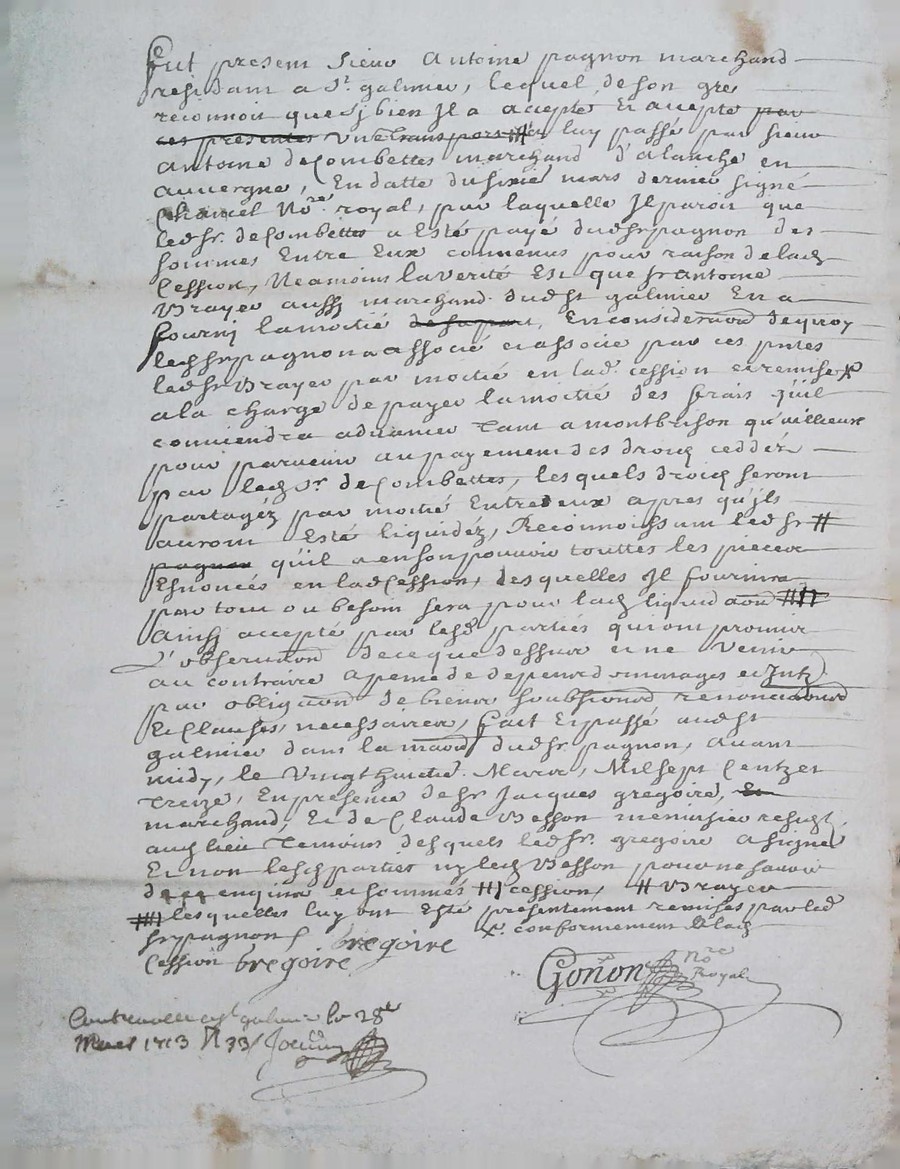 Fut present Sieur Antoine pagnon marchand
residant a St. galmier, lequel de son gre
reconnoit que sj bien Il a accepté Et accepte par
ces presentes une transport # a luy passé par sieur
antoine de Combettes marchand d'alanche en
auvergne, En datte du sixie mars dernier signé
Charcel Nore. royal, par laquelle Il paroit que
led sr. de Combettes a Esté payé dud sr pagnon des
sommes Entre Eux convenus pour raison de lad
Cession, Neamoins la verité Est que sr antoine
Vrayer aussj marchand dud st galmier En a
fournj la moitié de sa part, En consideration de quoy
led sr pagnon a associé et associe par ces pntes
led sr Vrayer par moitié en lad. cession et remise x
a la charge de payer la moitié des frais qu'il
conviendra advancer tant a montbrison qu'aillieurs
pour parvenir au payement des droicts ceddéz
par led sr. de Combettes, les quels droicts seront
partagéz par moitié Entre deux apres qu'ils
auront Esté liquidéz, Reconnoissant led sr #
pagnon qu'il a en son pouvoir touttes les pieces
Esnoncés en lad Cession, des quelles Il fournira
par tout ou besoin sera pour lad liquidaon ###
Ainsj accepté par lesd partiés qui ont promis
L'observation de ce que dessus et ne venir
au contraire a peine de depens dommages et Intz
par obligaon de biens soubsmions renonciaons
Et Clauses necessaires, fait Et passé aud st
galmier dans la maion dud sr pagnon, avant
midy, le Vingt huictie. Mars, Mil sept Centz et
treize, En presence de sr Jacques gregoire, Et
marchand, Et de Claude Besson menuisier residt.
aud lieu temoins des quels led sr. gregoire a signé
Et non lesd parties ny led Besson pour ne savoir
de ce enquis et sommés ## cession, # Vrayer
### les quelles luy ont Esté présentement remises par led
sr pagnon x. conformement a lad
Cession gregoire gregoire
Gonon Nore Royal
Controllé a st galmier le 28e
Mars 1713